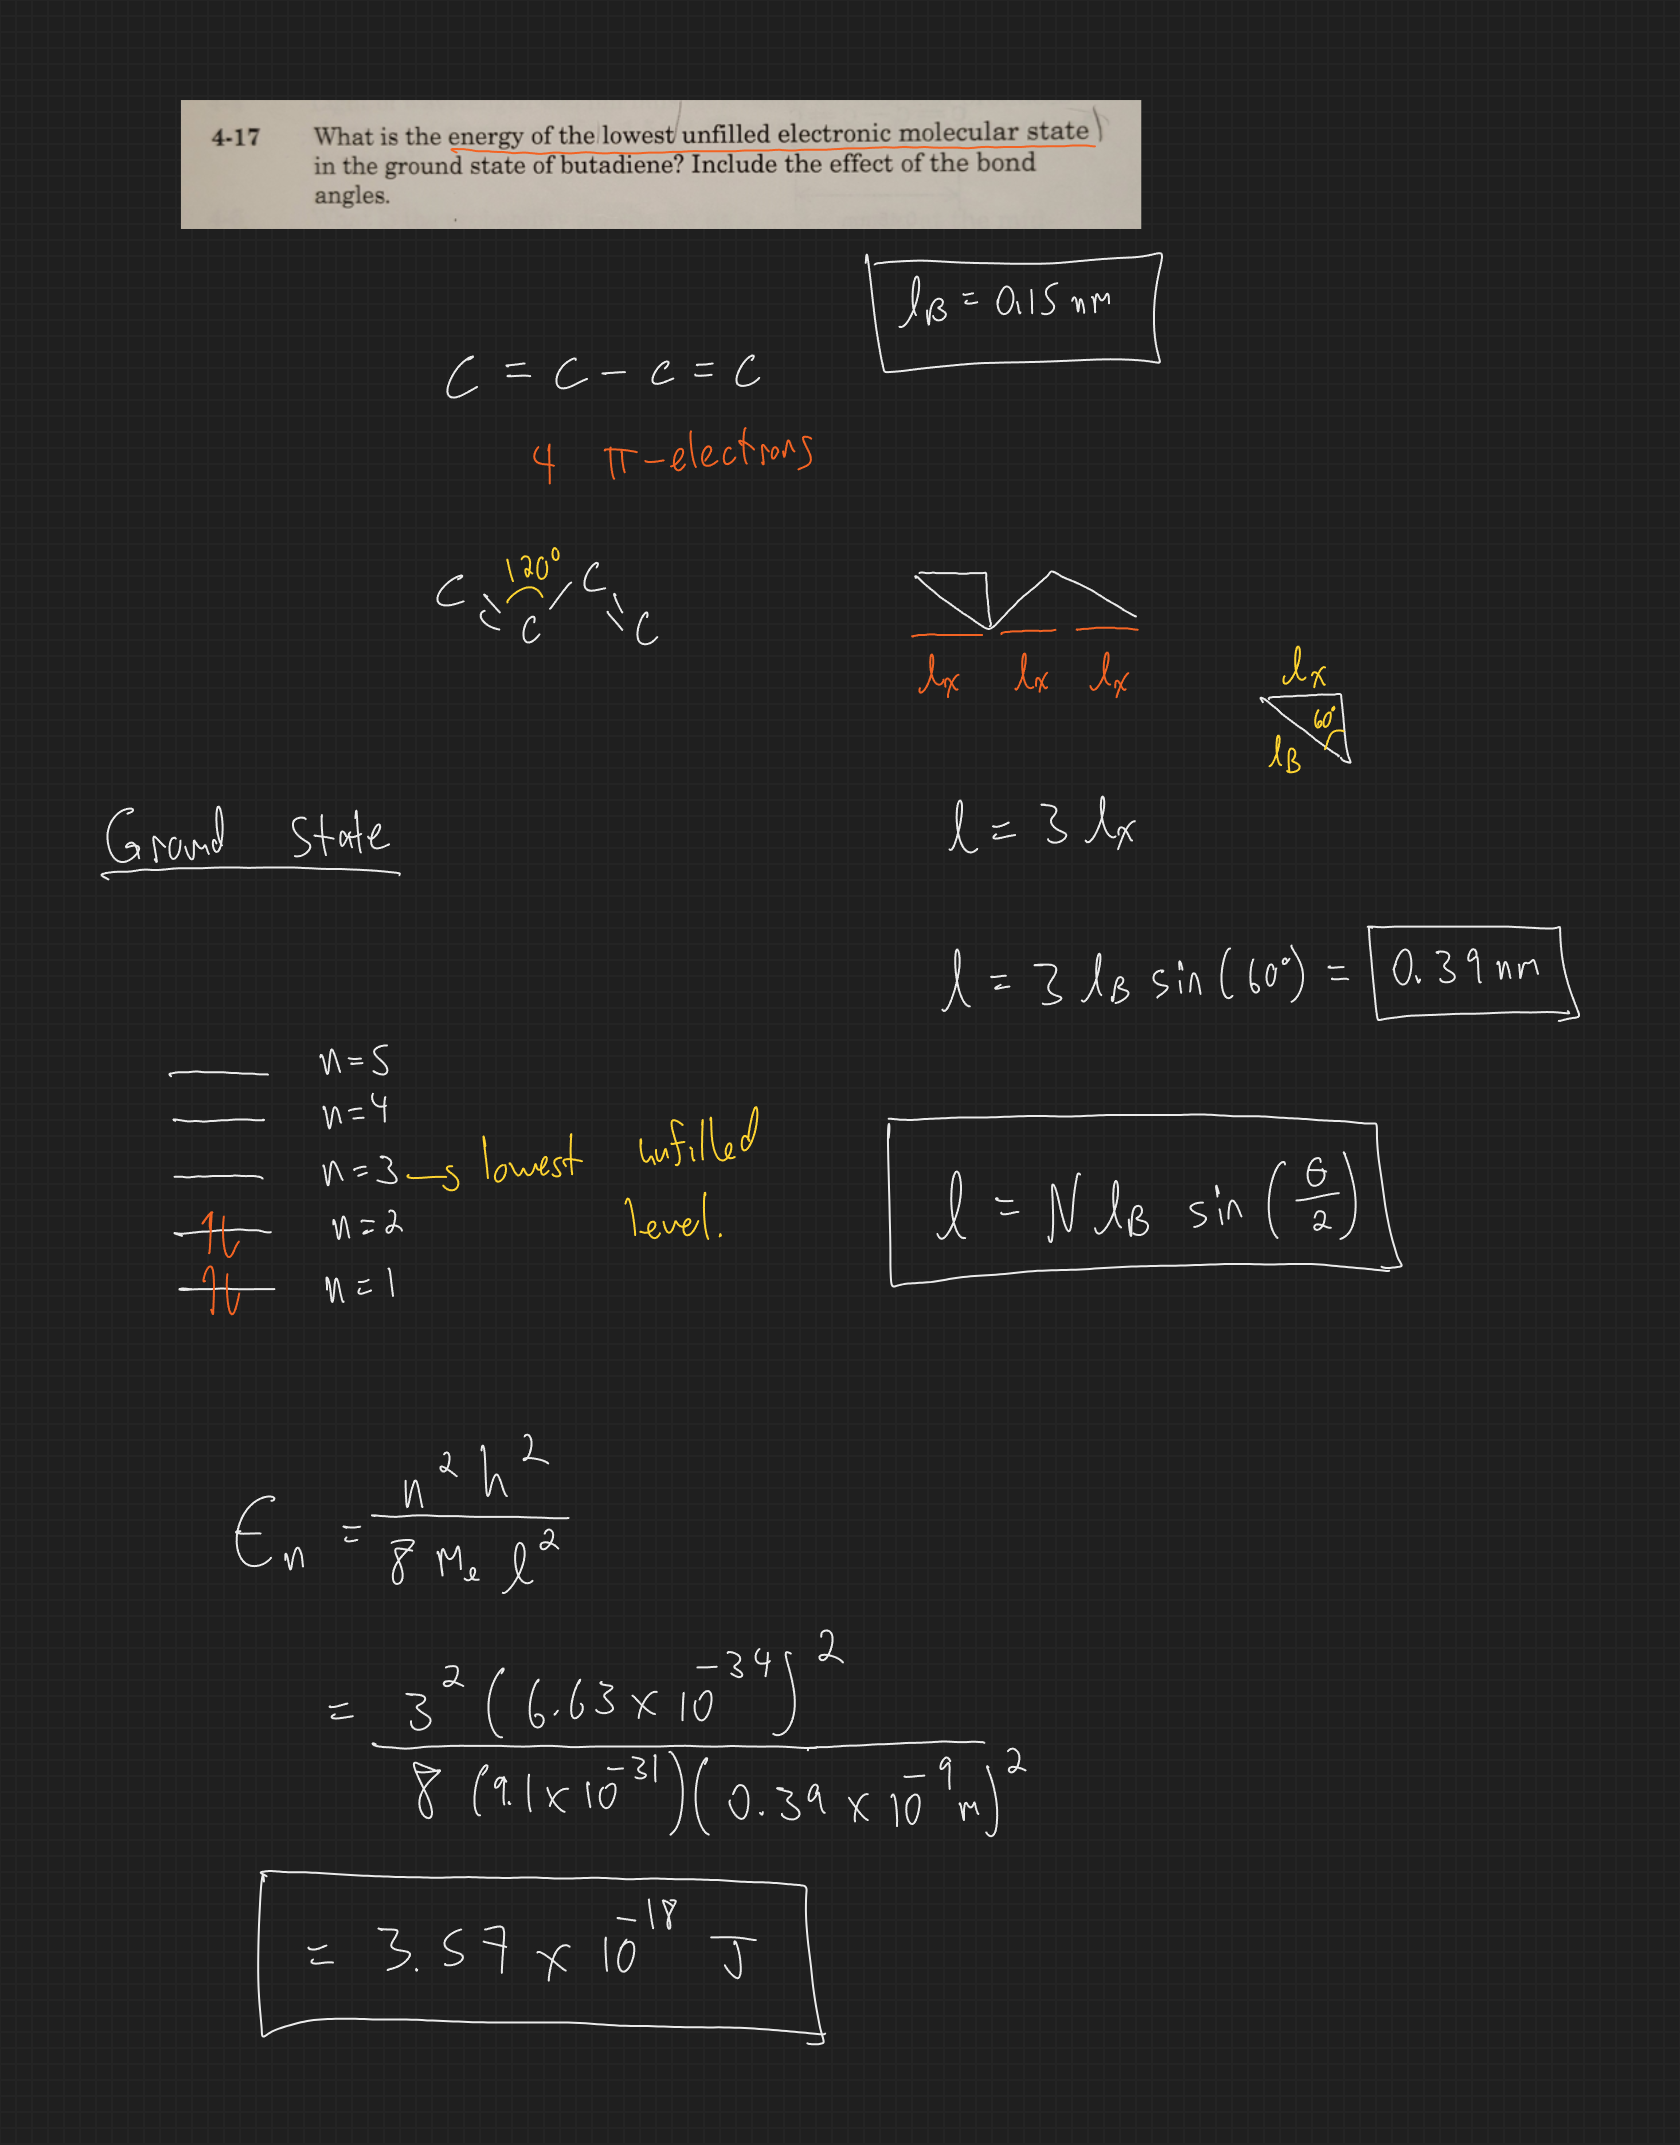 4-17 What is the energy of the lowest unfilled electronic molecular state
in the ground state of butadiene? Include the effect of the bond
angles.
l_B = 0.15 nm
C = C - C = C
4 π-electrons
120°
C C
C C
l_x l_x l_x
l_x
60°
l_B
l = 3 l_x
Ground State
l = 3 l_B sin(60°) = 0.39 nm
n=5
n=4
n=3 → lowest unfilled
level.
n=2
n=1
l = N l_B sin(θ/2)
E_n = n² h² / 8 m_e l²
= 3² (6.63 x 10^-34)² / 8 (9.1 x 10^-31)(0.39 x 10^-9 m)²
= 3.57 x 10^-18 J